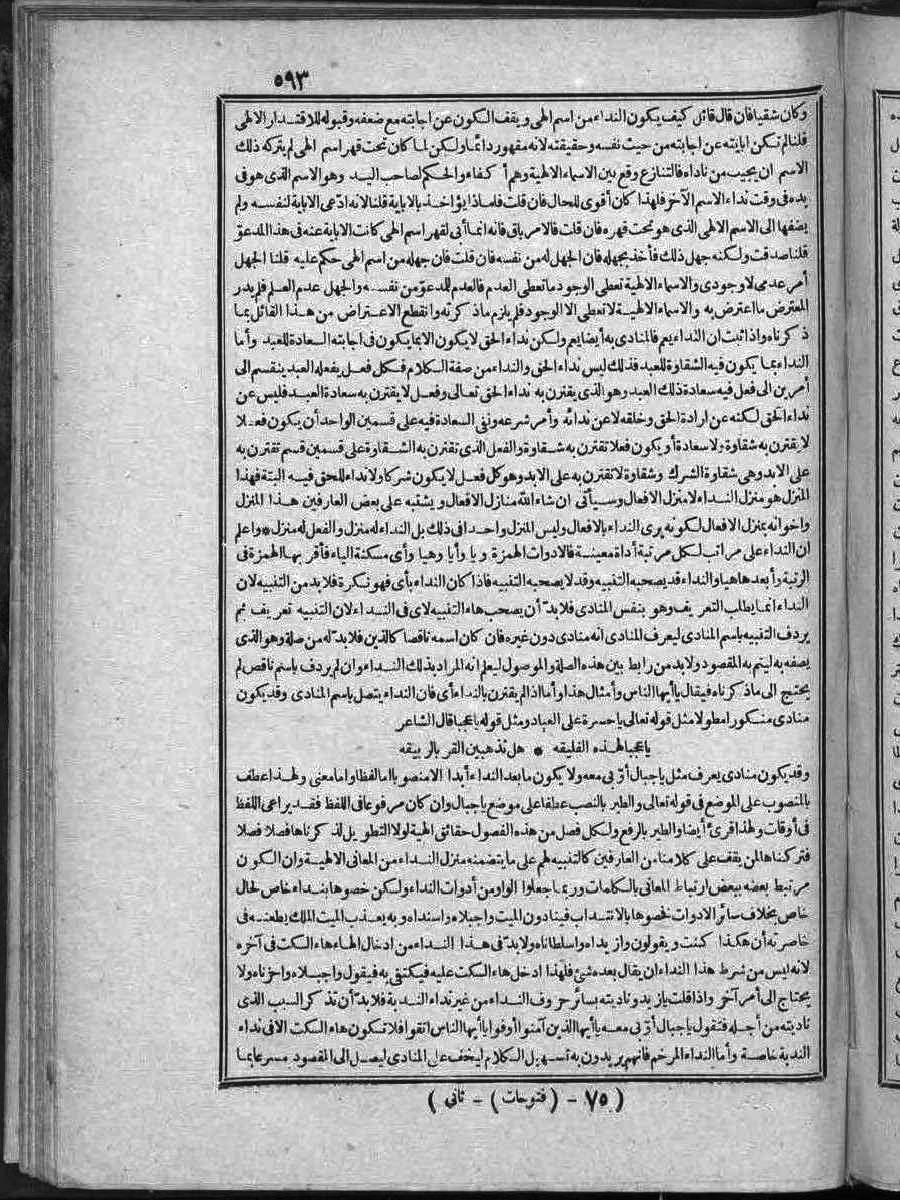 ٥٩٣
وكان شقيا فان قال قائل كيف يكون النداء من اسم الهى ويقف الكون عن اجابته مع ضعفه وقبوله للاقتدار الالهى
قلنا لم تكن ابايته عن اجابته من حيث نفسه وحقيقته لانه مقهور دائما ولكن لما كان تحت قهر اسم الهى لم يتركه ذلك
الاسم ان يجيب من ناداه فالتنازع وقع بين الاسماء الالهية وهم أكفاء والحكم لصاحب اليد وهو الاسم الذى هو فى
يده فى وقت نداء الاسم الآخر فلهذا كان أقوى للحال فان قلت فلماذا يؤاخذ بالاباية قلنا لانه ادّعى الاباية لنفسه ولم
يضفها الى الاسم الالهى الذى هو تحت قهره فان قلت فالامر باق فانه انما أبى لقهر اسم الهى كانت الاباية عنه فى هذا المدعوّ
قلنا صدقت ولكنه جهل ذلك فأخذ بجهله فان الجهل له من نفسه فان قلت فان جهله من اسم الهى حكم عليه قلنا الجهل
أمر عدمى لا وجودى والاسماء الالهية تعطى الوجود ما تعطى العدم فالعدم للمدعوّ من نفسه والجهل عدم العلم فلم يدر
المعترض ما اعترض به والاسماء الالهية لا تعطى الا الوجود فلم يلزم ما ذكرته وانقطع الاعتراض من هذا القائل بما
ذكرناه واذا ثبت ان النداء يعم فالمنادى به أيضا يعم ولكن نداء الحق لا يكون الا بما يكون فى اجابته السعادة للعبد وأما
النداء بما يكون فيه الشقاوة للعبد فذلك ليس نداء الحق والنداء من صفة الكلام فكل فعل يفعله العبد ينقسم الى
أمرين الى فعل فيه سعادة ذلك العبد وهو الذى يقترن به نداء الحق تعالى وفعل لا يقترن به سعادة العبد فليس عن
نداء الحق لكنه عن ارادة الحق وخلقه لا عن ندائه وأمر شرعه ونفى السعادة فيه على قسمين الواحد أن يكون فعلا
لا يقترن به شقاوة ولا سعادة أو يكون فعلا تقترن به شقاوة والفعل الذى تقترن به الشقاوة على قسمين قسم تقترن به
على الابد وهى شقاوة الشرك وشقاوة لا تقترن به على الابد وهو كل فعل لا يكون شركا ولا نداء للحق فيه البتة فهذا
المنزل هو منزل النداء لا منزل الافعال وسيأتى ان شاء الله منازل الافعال ويشتبه على بعض العارفين هذا المنزل
واخوانه بمنزل الافعال لكونه يرى النداء بالافعال وليس المنزل واحدا فى ذلك بل النداء له منزل والفعل له منزل * واعلم
ان النداء على مراتب لكل مرتبة أداة معينة فالادوات الهمزة ويا وأيا وهيا وأى مسكنة الياء فأقربها الهمزة فى
الرتبة وأبعدها هيا والنداء قد يصحبه التنبيه وقد لا يصحبه التنبيه فاذا كان النداء بأى فهو نكرة فلا بد من التنبيه لان
النداء انما يطلب التعريف وهو بنفس المنادى فلا بدّ أن يصحب هاء التنبيه لاى فى النداء لان التنبيه تعريف ثم
يردف التنبيه باسم المنادى ليعرف المنادى انه منادى دون غيره فان كان اسمه ناقصا كالذين فلا بدّ له من صلة وهو الذى
يصفه به ليتم به المقصود ولا بد من رابط بين هذه الصلة والموصول ليعلم انه المراد بذلك النداء وان لم يردف باسم ناقص لم
يحتج الى ما ذكرناه فيقال يا أيها الناس وأمثال هذا وأما اذا لم يقترن بالنداء أى فان النداء يتصل باسم المنادى وقد يكون
منادى منكورا مطولا مثل قوله تعالى يا حسرة على العباد ومثل قوله يا عجبا قال الشاعر
يا عجبا لهذه الفليقه * هل تذهبن القربا الريقه
وقد يكون منادى يعرف مثل يا جبال أوّبى معه ولا يكون ما بعد النداء أبدا الا منصوبا اما لفظا واما معنى ولهذا عطف
بالمنصوب على الموضع فى قوله تعالى والطير بالنصب عطفا على موضع يا جبال وان كان مرفوعا فى اللفظ فقد يراعى اللفظ
فى أوقات ولهذا قرئ أيضا والطير بالرفع ولكل فصل من هذه الفصول حقائق الهية لولا التطويل لذكرناها فصلا فصلا
فتركناها لمن يقف على كلامنا من العارفين كالتنبيه لهم على ما يتضمنه منزل النداء من المعانى الالهية وان الكون
مرتبط بعضه ببعض ارتباط المعانى بالكلمات وربما جعلوا الواو من أدوات النداء ولكن خصوها بنداء خاص لحال
خاص بخلاف سائر الادوات فخصوها بالانتداب فينادون الميت واجبلاه واسنداه وبه يعذب الميت الملك يطعنه فى
خاصرته أن هكذا كنت ويقولون وازيداه واسلطاناه ولا بدّ فى هذا النداء من ادخال الهاء هاء السكت فى آخره
لانه ليس من شرط هذا النداء ان يقال بعده شئ فلهذا ادخل هاء السكت عليه فيكتفى به فيقول واجبلاه واحزناه ولا
يحتاج الى أمر آخر واذا قلت يا زيد وناديته بسائر حروف النداء من غير نداء الندبة فلا بدّ أن تذكر السبب الذى
ناديته من أجله فتقول يا جبال أوّبى معه يا أيها الذين آمنوا أوفوا يا أيها الناس اتقوا فلا تكون هاء السكت الا فى نداء
الندبة خاصة وأما النداء المرخم فانهم يريدون به تسهيل الكلام ليخف على المنادى ليصل الى المقصود مسرعا بما
( ٧٥ - (فتوحات) - ثانى )